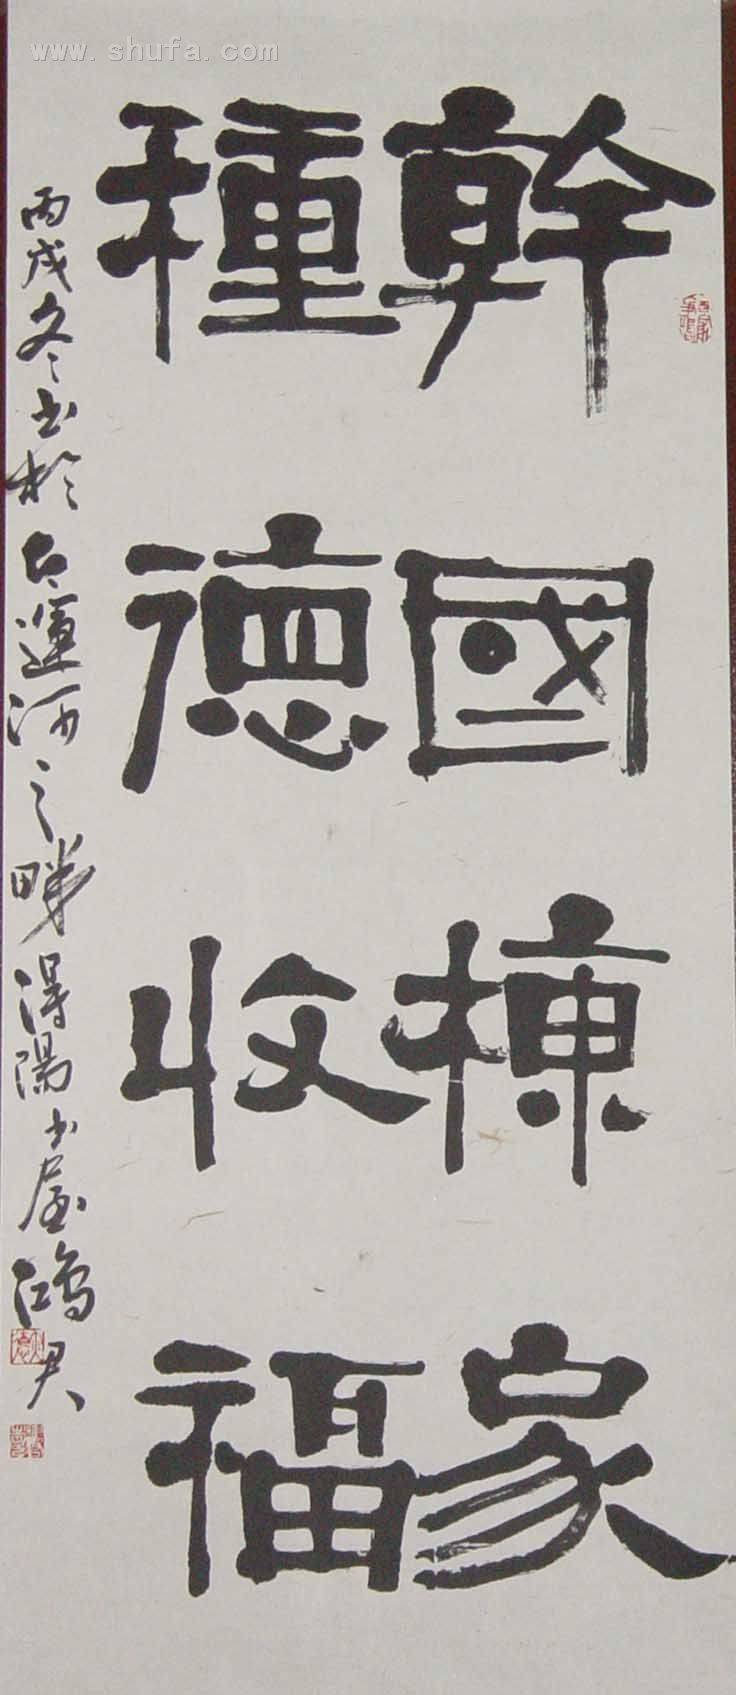 www.shufa.com
幹國棟家
種德收福
丙戌冬书於古運河之畔陽书屋鴻君